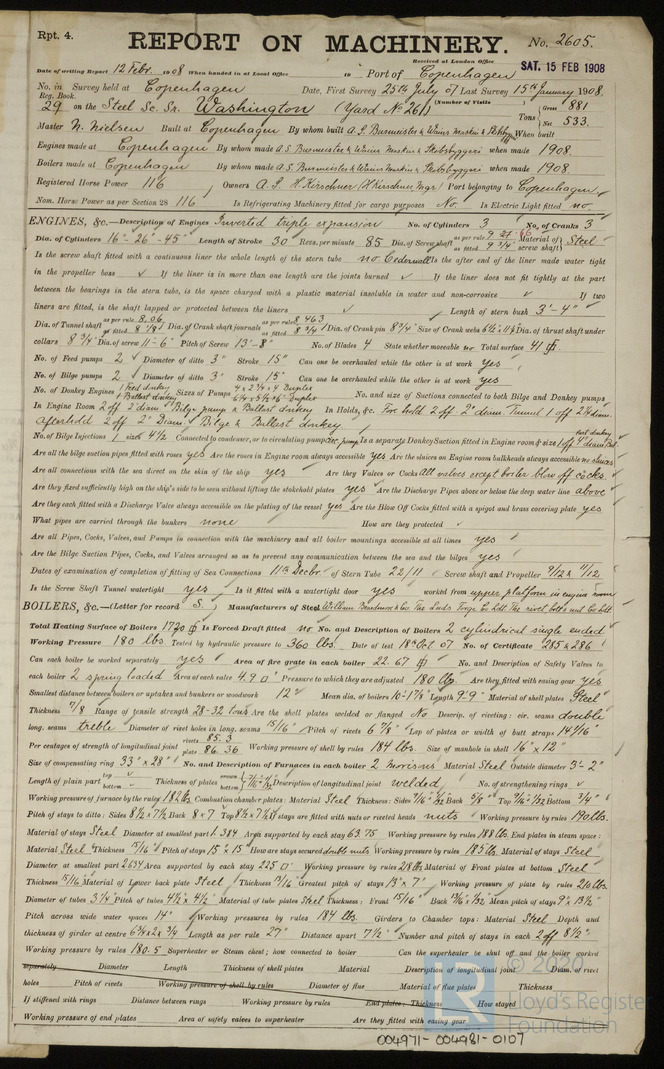 Rpt. 4.
REPORT ON MACHINERY. No. 2605.
Received at London Office SAT. 15 FEB 1908
Date of writing Report 12 Febr. 1908 When handed in at Local Office 10 Port of Copenhagen
No. in Survey held at Copenhagen Date, First Survey 25th July 07 Last Survey 15th January 1908.
Reg. Book. (Number of Visits
29 on the Steel Sc. Sr. Washington (Yard No 261) Tons Gross 881 Net 533.
Master N. Nielsen Built at Copenhagen By whom built A.S. Burmeister & Wains Maskin & Skibsb. When built
Engines made at Copenhagen By whom made A.S. Burmeister & Wains Maskin & Skibsbyggeri when made 1908.
Boilers made at Copenhagen By whom made A.S. Burmeister & Wains Maskin & Skibsbyggeri when made 1908.
Registered Horse Power 116 Owners Port belonging to Copenhagen
Nom. Horse Power as per Section 28 116 Is Refrigerating Machinery fitted for cargo purposes No. Is Electric Light fitted no.
ENGINES, &c.—Description of Engines Inverted triple expansion No. of Cylinders 3 No. of Cranks 3
Dia. of Cylinders 16"-26"-45" Length of Stroke 30" Revs. per minute 85 Dia. of Screw shaft as per rule as fitted 9 3/4" Material of screw shaft Steel
Is the screw shaft fitted with a continuous liner the whole length of the stern tube no Cederwall Is the after end of the liner made water tight
in the propeller boss ✓ If the liner is in more than one length are the joints burned ✓ If the liner does not fit tightly at the part
between the bearings in the stern tube, is the space charged with a plastic material insoluble in water and non-corrosive ✓ If two
liners are fitted, is the shaft lapped or protected between the liners ✓ Length of stern bush 3'-4"
Dia. of Tunnel shaft as per rule 8.06 as fitted 8 1/8" Dia. of Crank shaft journals as per rule 8.463 as fitted 8 3/4" Dia. of Crank pin 8 3/4" Size of Crank webs Dia. of thrust shaft under
collars 8 3/4" Dia. of screw 11'-6" Pitch of Screw 13'-8" No. of Blades 4 State whether moveable no Total surface 41
No. of Feed pumps 2 Diameter of ditto 3" Stroke 15" Can one be overhauled while the other is at work yes
No. of Bilge pumps 2 Diameter of ditto 3" Stroke 15" Can one be overhauled while the other is at work yes
No. of Donkey Engines 1 Feed donkey 1 Ballast donkey Sizes of Pumps Duplex Duplex No. and size of Suctions connected to both Bilge and Donkey pumps
In Engine Room 2 off 2" diam. Bilge pump & Ballast donkey In Holds, &c. For hold 2 off 2" diam Tunnel 1 off 2 1/4 diam.
afterhold 2 off 2" Diam. Bilge & Ballast donkey.
No. of Bilge Injections 1 sizes 4 1/2 Connected to condenser, or to circulating pump Is a separate Donkey Suction fitted in Engine room & size 1 off 4" diam
Are all the bilge suction pipes fitted with roses yes Are the roses in Engine room always accessible yes Are the sluices on Engine room bulkheads always accessible no sluices
Are all connections with the sea direct on the skin of the ship yes Are they Valves or Cocks all valves except boiler blow off cocks
Are they fixed sufficiently high on the ship's side to be seen without lifting the stokehold plates yes Are the Discharge Pipes above or below the deep water line above
Are they each fitted with a Discharge Valve always accessible on the plating of the vessel yes Are the Blow Off Cocks fitted with a spigot and brass covering plate yes
What pipes are carried through the bunkers none How are they protected ✓
Are all Pipes, Cocks, Valves, and Pumps in connection with the machinery and all boiler mountings accessible at all times yes
Are the Bilge Suction Pipes, Cocks, and Valves arranged so as to prevent any communication between the sea and the bilges yes
Dates of examination of completion of fitting of Sea Connections 11th Decbr. of Stern Tube 22/11 Screw shaft and Propeller 9/12 & 11/12
Is the Screw Shaft Tunnel watertight yes Is it fitted with a watertight door yes worked from upper platform in engine room
BOILERS, &c.—(Letter for record S. ) Manufacturers of Steel The Leeds Forge Co Ltd.
Total Heating Surface of Boilers 1720 Is Forced Draft fitted no No. and Description of Boilers 2 cylindrical single ended
Working Pressure 180 lbs. Tested by hydraulic pressure to 360 lbs. Date of test 18th Oct 07 No. of Certificate 285 & 286
Can each boiler be worked separately yes Area of fire grate in each boiler 22.67 No. and Description of Safety Valves to
each boiler 2 spring loaded Area of each valve 4.9 Pressure to which they are adjusted 180 lbs Are they fitted with easing gear yes
Smallest distance between boilers or uptakes and bunkers or woodwork 12" Mean dia. of boilers 10-1 7/8 Length 9-9" Material of shell plates Steel
Thickness 7/8 Range of tensile strength 28-32 tons Are the shell plates welded or flanged No Descrip. of riveting: cir. seams double
long. seams treble Diameter of rivet holes in long. seams 15/16" Pitch of rivets 6 7/8" Lap of plates or width of butt straps 14 9/16"
Per centages of strength of longitudinal joint rivets 85.3 plate 86.36 Working pressure of shell by rules 184 lbs. Size of manhole in shell 16" x 12"
Size of compensating ring 33" x 28" No. and Description of Furnaces in each boiler 2 Morisons Material Steel Outside diameter 3'-2"
Length of plain part top bottom Thickness of plates crown bottom Description of longitudinal joint welded No. of strengthening rings ✓
Working pressure of furnace by the rules 182 lbs Combustion chamber plates: Material Steel Thickness: Sides Back 5/8" Top Bottom 3/4"
Pitch of stays to ditto: Sides Back 8 x 7 Top If stays are fitted with nuts or riveted heads nuts Working pressure by rules 190 lbs.
Material of stays Steel Diameter at smallest part 1.384 Area supported by each stay 63.75 Working pressure by rules 188 lbs. End plates in steam space:
Material Steel Thickness 15/16" Pitch of stays 15" x 15" How are stays secured double nuts Working pressure by rules 185 lbs. Material of stays Steel
Diameter at smallest part 2.634 Area supported by each stay 225 Working pressure by rules 218 lbs Material of Front plates at bottom Steel
Thickness 15/16 Material of Lower back plate Steel Thickness Greatest pitch of stays Working pressure of plate by rules 210 lbs.
Diameter of tubes 3 1/4 Pitch of tubes 4 1/2 x 4 1/2" Material of tube plates Steel Thickness: Front 15/16" Back Mean pitch of stays
Pitch across wide water spaces 14" Working pressures by rules 184 lbs. Girders to Chamber tops: Material Steel Depth and
thickness of girder at centre Length as per rule 27" Distance apart 7 1/2" Number and pitch of stays in each 2 off 8 1/2"
Working pressure by rules 180.5 Superheater or Steam chest; how connected to boiler Can the superheater be shut off and the boiler worked
separately Diameter Length Thickness of shell plates Material Description of longitudinal joint Diam. of rivet
holes Pitch of rivets Working pressure of shell by rules Diameter of flue Material of flue plates Thickness
If stiffened with rings Distance between rings Working pressure by rules End plates: Thickness How stayed
Working pressure of end plates Area of safety valves to superheater Are they fitted with easing gear
© 2020
Lloyd's Register
Foundation
LR
004971-004981-0107